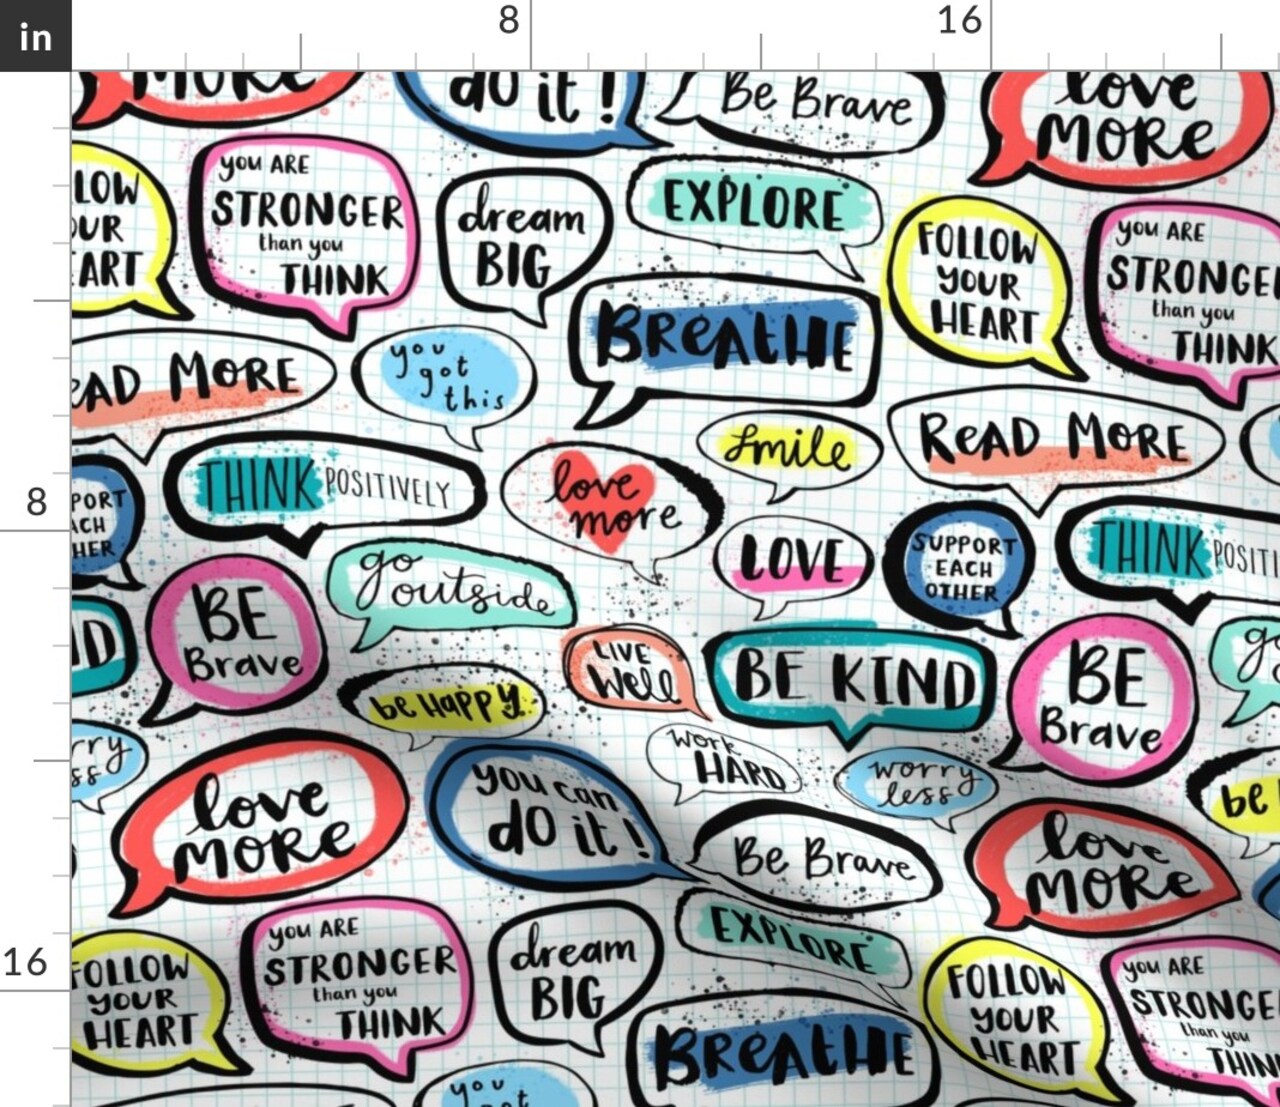 in
8
16
MORE
do it!
Be Brave
love
MORE
LOW
OUR
EART
you ARE
STRONGER
than you
THINK
dream
BIG
EXPLORE
FOLLOW
YOUR
HEART
you ARE
STRONGE
than you
THINK
BREATHE
EAD MORE
you
got
this
smile
READ MORE
8
PORT
ACH
HER
THINK POSITIVELY
love
more
LOVE
SUPPORT
EACH
OTHER
THINK POSITI
go
outside
BE
Brave
ND
LIVE
Well
BE KIND
BE
Brave
go
be Happy
rry
ss
work
HARD
worry
less
be
love
MORE
you can
do it!
Be Brave
love
MORE
16
FOLLOW
YOUR
HEART
you ARE
STRONGER
than you
THINK
dream
BIG
EXPLORE
FOLLOW
YOUR
HEART
you ARE
STRONGE
than you
THIN
BREATHE
you
got